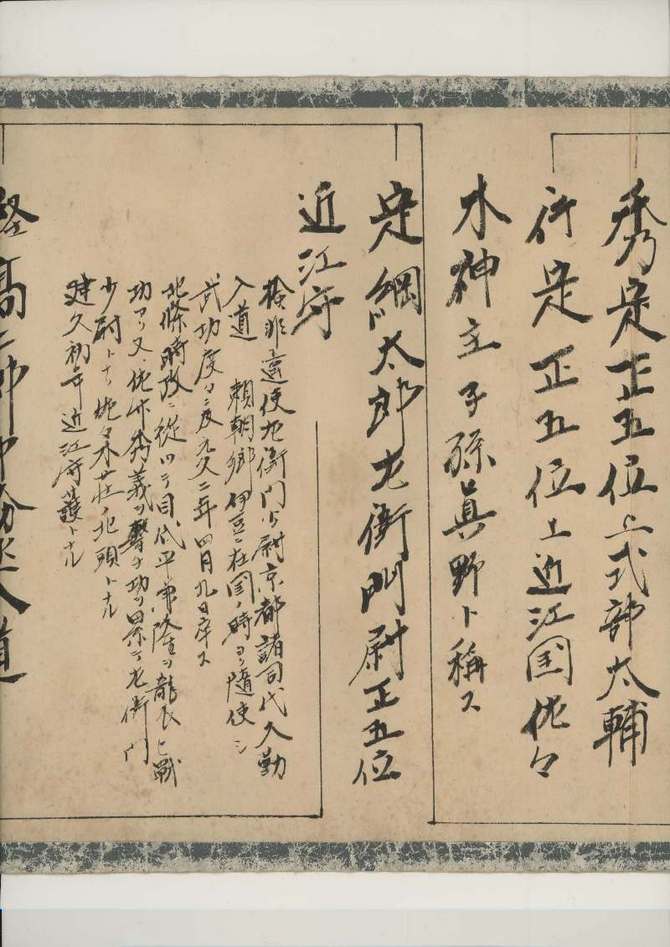 秀定正五位上式部太輔
行定正五位上近江国佐々
木神主子孫眞野ト稱ス
定綱太郎左衛門尉正五位
近江守
検非違使左衛門少尉京都諸司代入勤
入道　頼朝郷伊豆ニ在国ノ時ヨリ隨使シ
武功度々ニ及元久二年四月九日卒ス
北條時政ニ從ツテ目代平常隆ヲ襲ヒ戰
功アリ又佐竹秀義ヲ撃ツ功ヲ以テ左衛門
少尉トナリ佐々木荘ノ地頭トナル
建久初年近江守護トナル
経高二郎中務丞入道